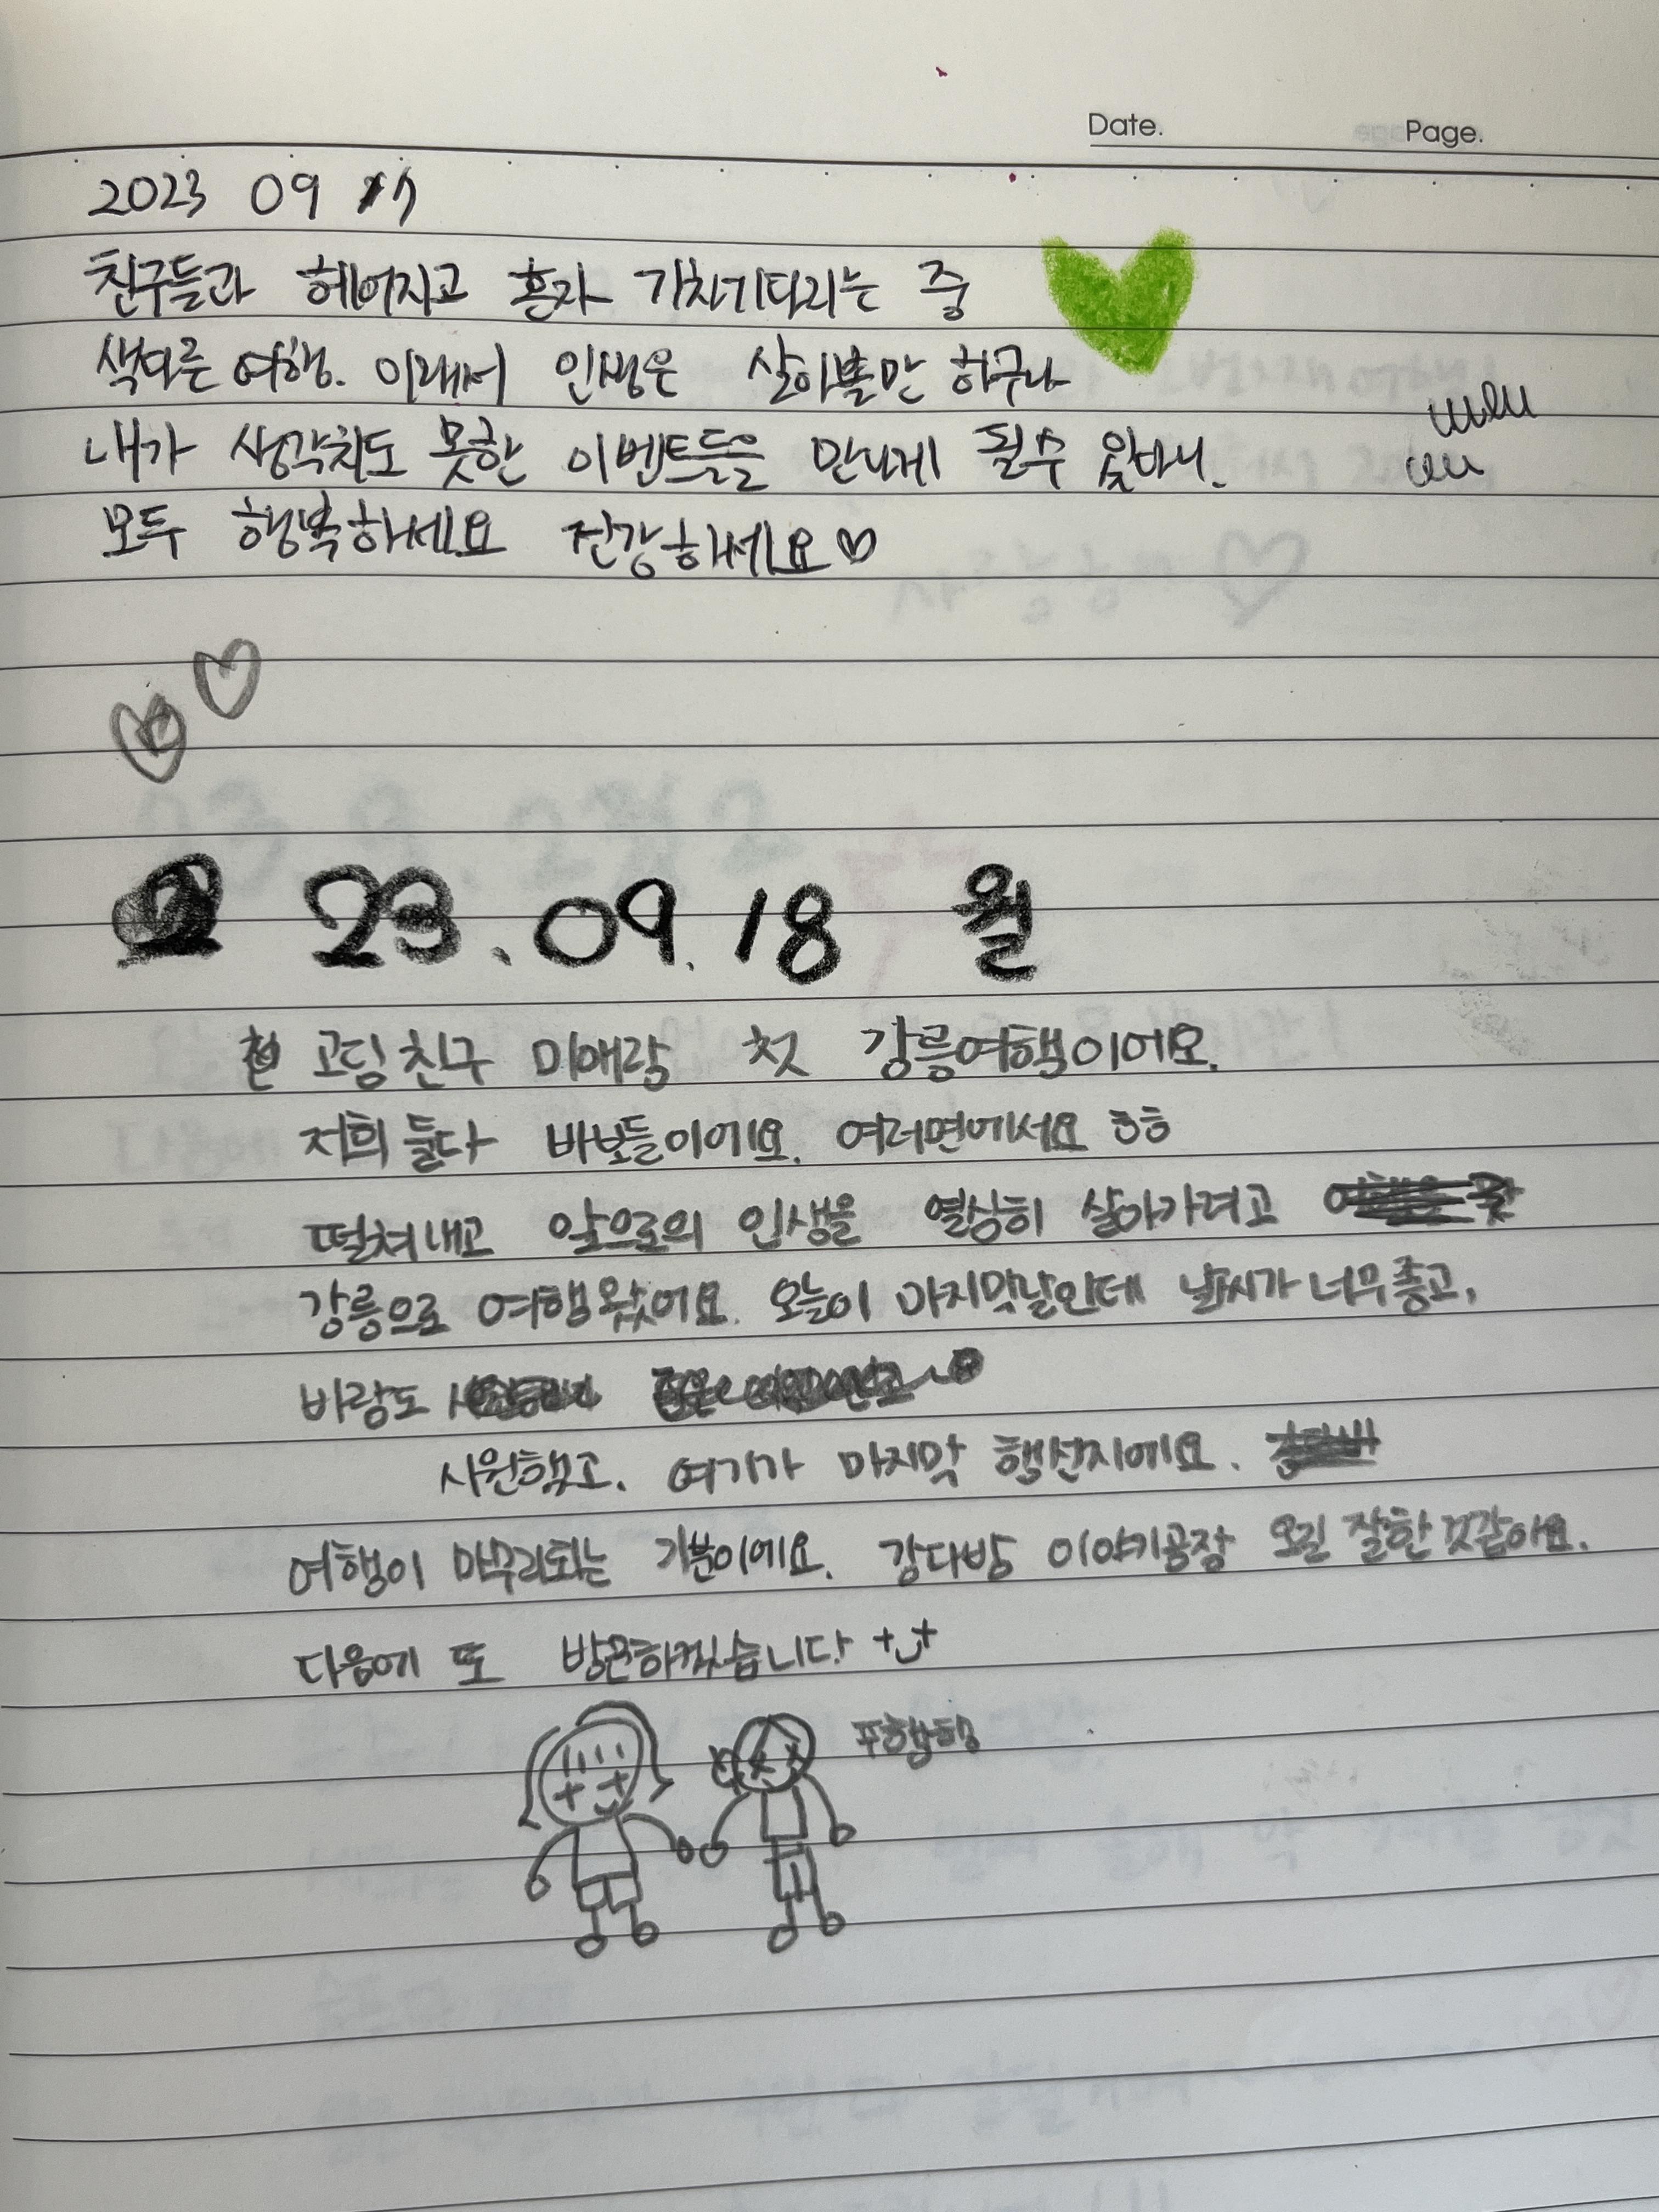 Date. Page.
2023 09 17
친구들과 헤어지고 혼자 기차기다리는 중
색다른 여행. 이래서 인생은 살아볼만 하구나
내가 생각치도 못한 이벤트들을 만나게 될수 있다니.
모두 행복하세요 건강하세요♡
23.09.18 월
코딩친구 미애랑 첫 강릉여행이에요.
저희 둘다 바보들이에요. 여러면에서요 ㅎㅎ
떨쳐내고 앞으로의 인생을 열심히 살아가려고
강릉으로 여행왔어요. 오늘이 마지막날인데 날씨가 너무좋고,
바람도
시원했고. 여기가 마지막 행선지에요.
여행이 마무리되는 기분이에요. 강다방 이야기공장 오길 잘한것같아요.
다음에 또 방문하겠습니다
푸항항